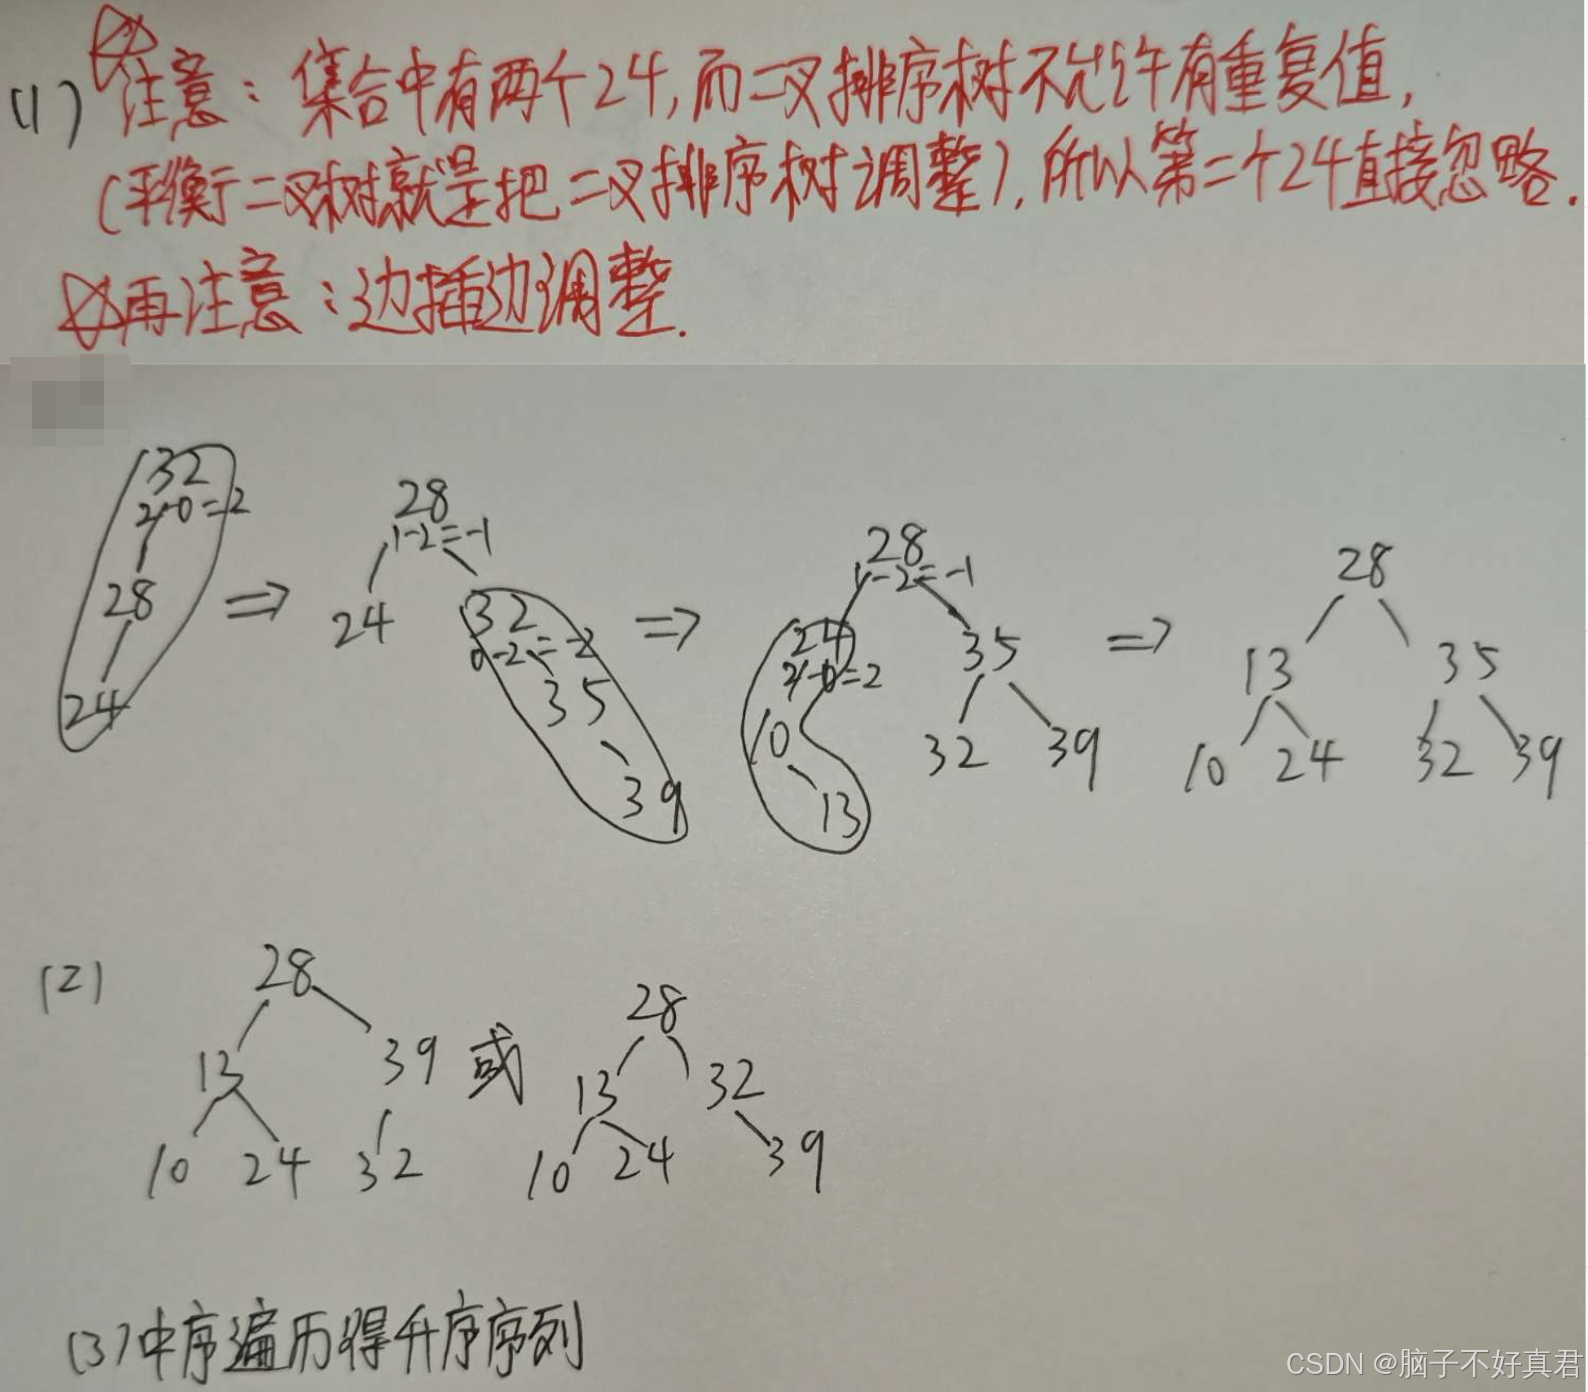 (1) 注意：集合中有两个24,而二叉排序树不允许有重复值,
(平衡二叉树就是把二叉排序树调整),所以第二个24直接忽略.
再注意：边插边调整.
32
2-0=2
28
24
⇒
28
1-2=-1
24
32
0-2=-2
35
39
⇒
28
1-2=-1
24
2-0=2
35
10
32
39
13
⇒
28
13
35
10
24
32
39
(2)
28
13
39
10
24
32
或
28
13
32
10
24
39
(3)中序遍历得升序序列
CSDN @脑子不好真君